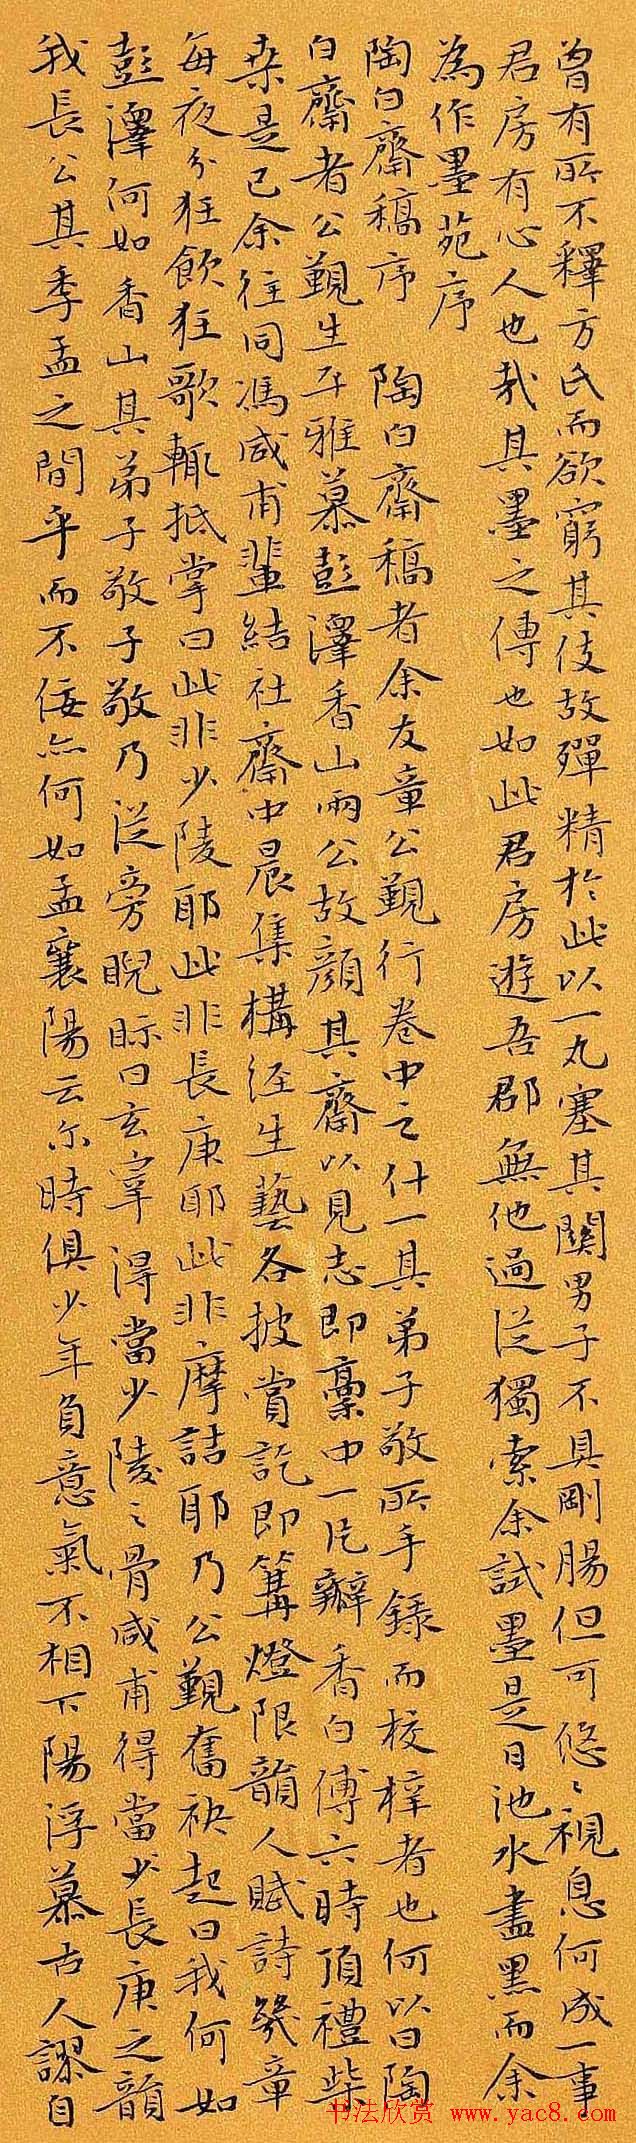 曾有所不釋方氏而欲窮其伎故殫精於此以一丸塞其關男子不具剛腸但可悠〻視息何成一事
君房有心人也哉其墨之傳也如此君房遊吾郡無他過從獨索余試墨是日池水盡黑而余
為作墨苑序
陶白齋稿序 陶白齋稿者余友章公覲行卷中之什一其弟子敬所手錄而校梓者也何以曰陶
白齋者公覲生平雅慕彭澤香山兩公故顏其齋以見志即稾中一瓣香白傅六時頂禮柴
桑是已余往同馮咸甫輩結社齋中晨集構經生藝各披賞訖即篝燈限韻人賦詩幾章
每夜分狂飲狂歌輒抵掌曰此非少陵耶此非長庚耶此非摩詰耶乃公覲奮袂起曰我何如
彭澤何如香山其弟子敬子敬乃從旁睨眎曰玄宰得當少陵〻骨咸甫得當少長庚之韻
我長公其季孟之間乎而不佞亦何如孟襄陽云尔時俱少年負意氣不相下陽浮慕古人謬自
书法欣赏 www.yac8.com